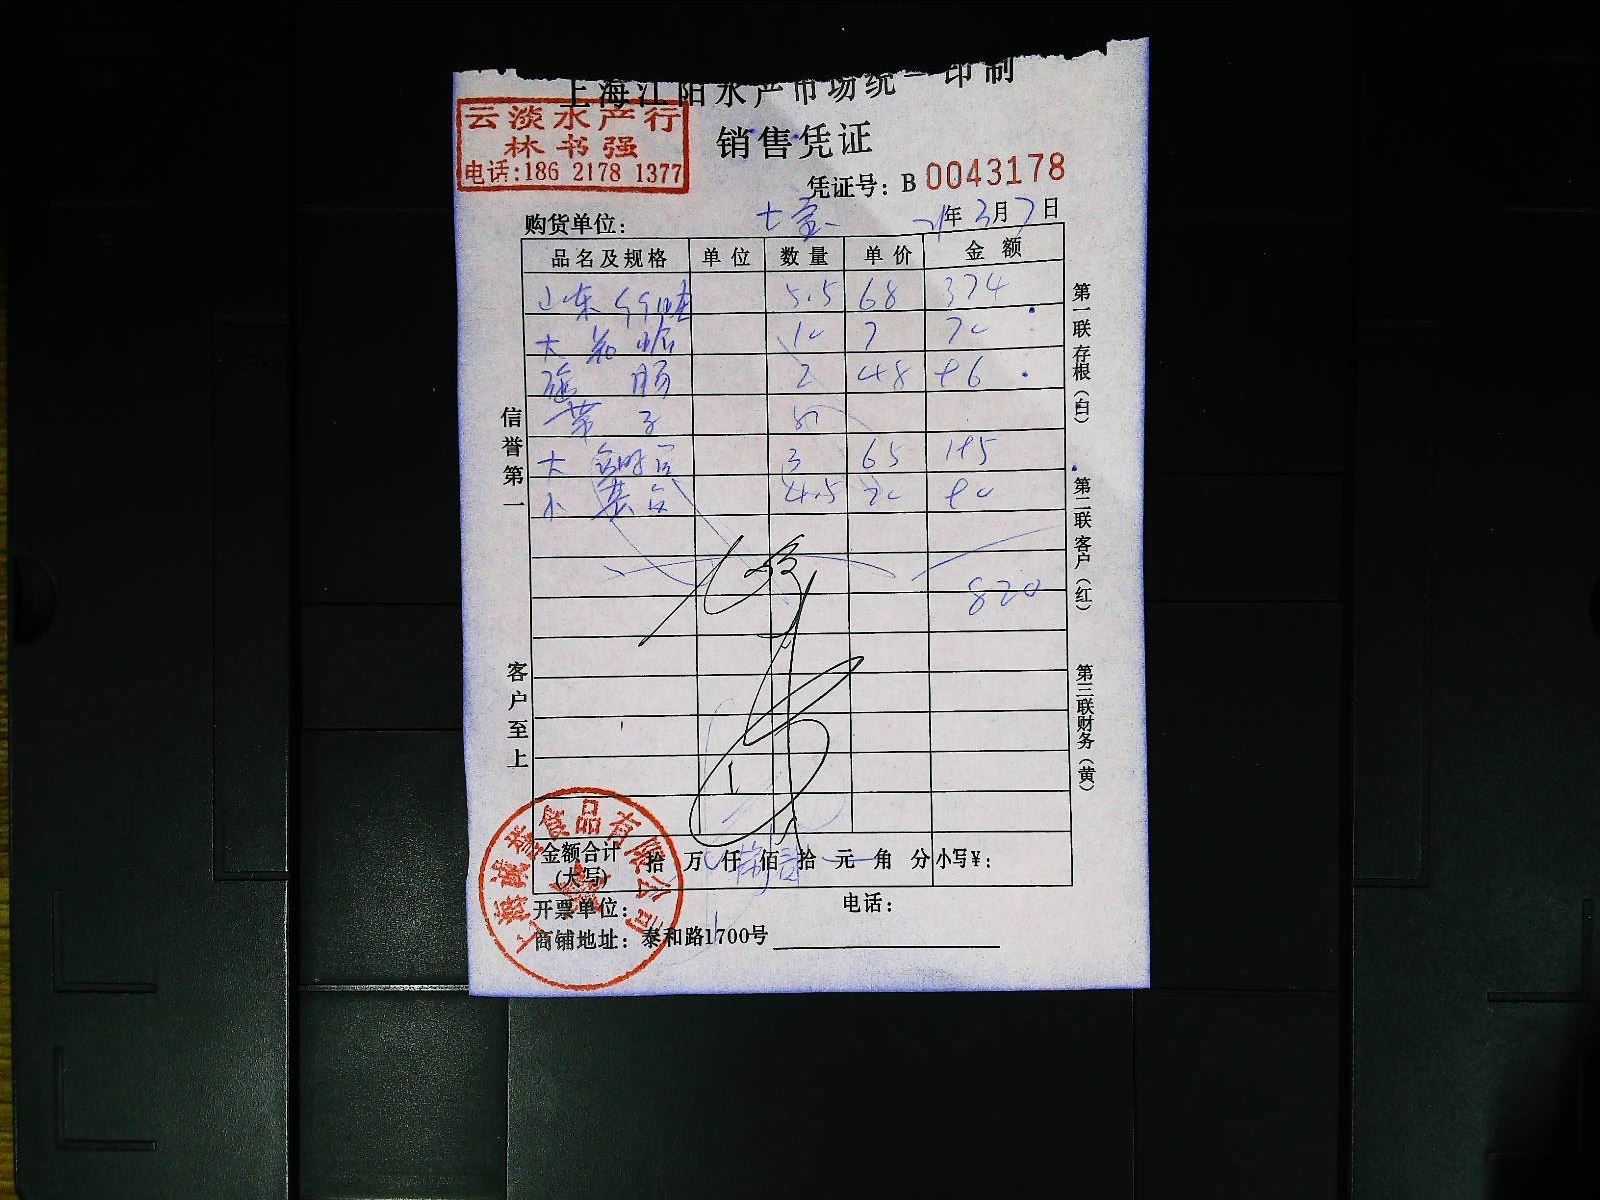 上海江阳水产市场统一印制
云淡水产行
林书强
电话:186 2178 1377
销售凭证
凭证号: B 0043178
购货单位: 七宝 21年3月7日
品名及规格 单位 数量 单价 金额
山东 5.5 68 374
大 10 7 70
肠 2 48 96
带子
大 3 65 195
小 4.5 20 90
820
信誉第一
客户至上
第一联存根(白)
第二联客户(红)
第三联财务(黄)
金额合计(大写) 拾 万 仟 佰 拾 元 角 分 小写¥:
开票单位: 电话:
商铺地址: 泰和路1700号
上海诚誉食品有限公司